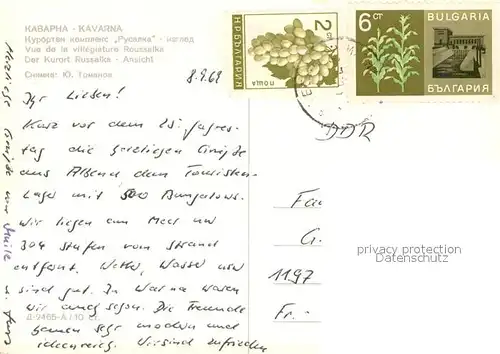 КАВАРНА - KAVARNA
Курортен комплекс „Русалка" - изглед
Vue de la villégiature Roussalka
Der Kurort Russalka - Ansicht
Снимка: Ю. Томанов
8.9.69
Ihr Lieben!
Kurz vor dem 25. Jahres-
tag die herzlichen Grüße
aus Albena dem Touristen-
Lager mit 500 Bungalows.
Wir liegen am Meer und
304 Stufen vom Strand
entfernt. Wetter, Wasser usw
sind gut. In Warna waren
wir auch schon. Die Freunde
bauen sehr modern und
ideenreich. Wir sind zufrieden
Herzliche Grüße
Д-9465-А/10 ст.
2 ст
НР БЪЛГАРИЯ
ПОЩА
6 СТ
BULGARIA
БЪЛГАРИЯ
DDR
Fa
G.
1197
Fr.
privacy protection